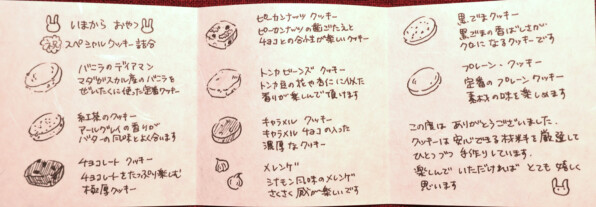 いまから おやつ
祝 スペシャルクッキー詰合
バニラのディアマン
マダガスカル産のバニラを
ぜいたくに使った定番クッキー
紅茶のクッキー
アールグレイの香りが
バターの風味とよく合います
チョコレート クッキー
チョコレートをたっぷり楽しむ
極厚クッキー
ピーカンナッツ クッキー
ピーカンナッツの歯ごたえと
チョコとの合わせが楽しいクッキー
トンカビーンズ クッキー
トンカ豆の花や杏仁に似た
香りが楽しんで頂けます
キャラメル クッキー
キャラメル チョコの入った
濃厚なクッキー
メレンゲ
シナモン風味のメレンゲ
さくさく 感が楽しいです
黒ごまクッキー
黒ごまの香ばしさが
クセになるクッキーです
プレーン・クッキー
定番のプレーンクッキー
素材の味を楽しめます
この度は ありがとうございました。
クッキーは安心できる材料を厳選して
ひとつづつ 手作りしています。
楽しんで いただければ とても 嬉しく
思います